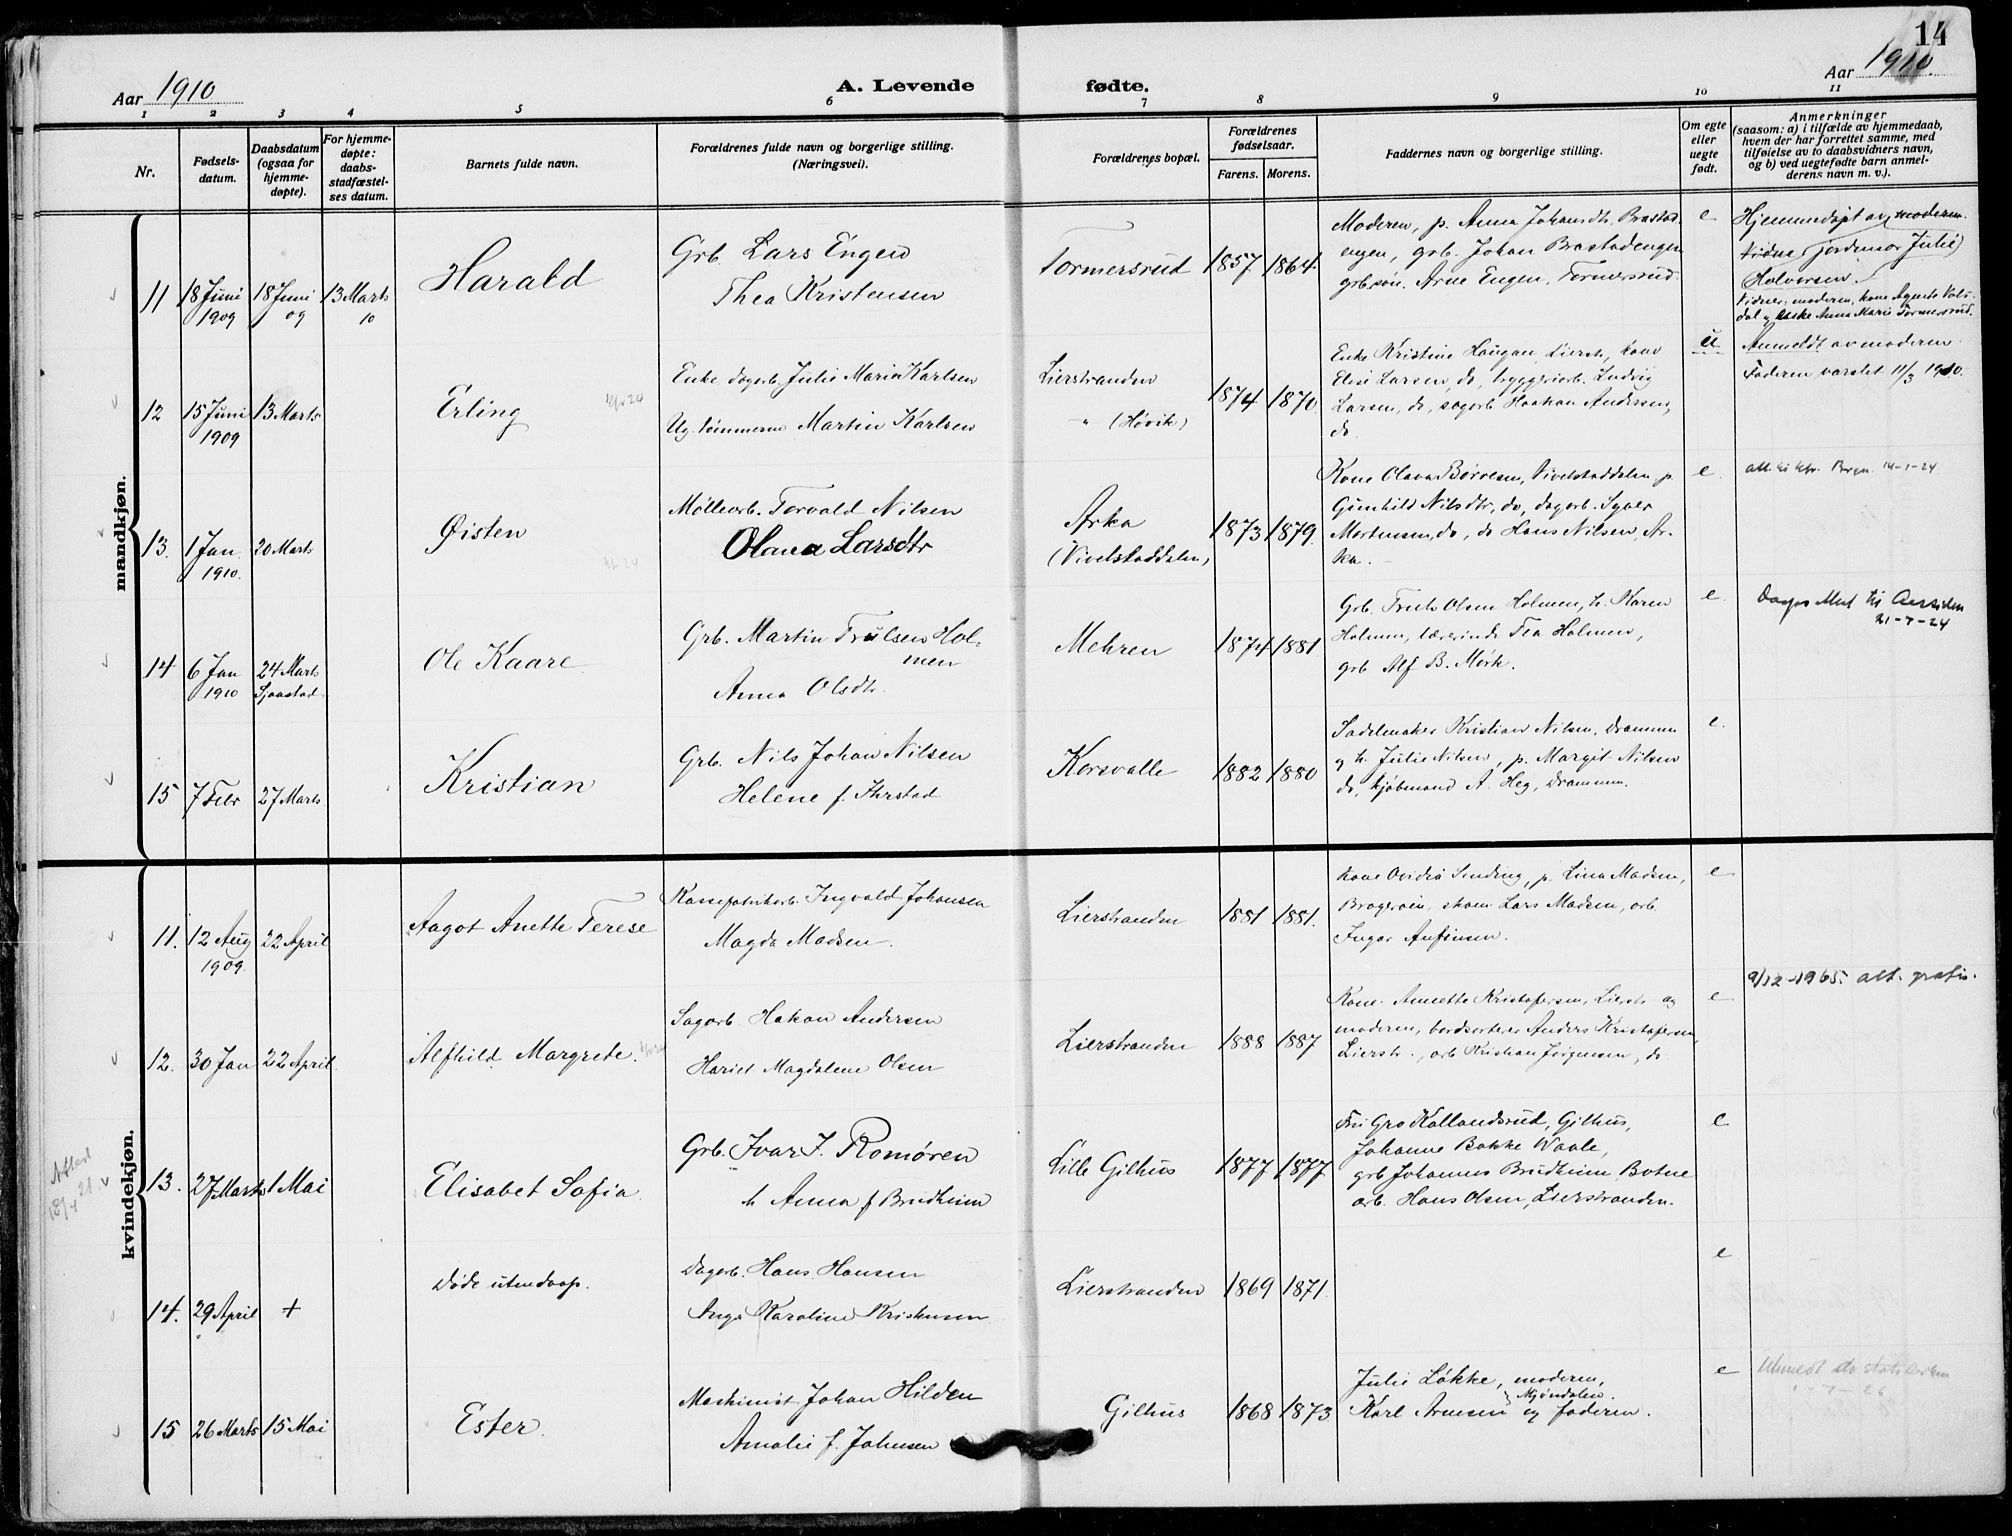 14
Aar 1910
A. Levende
fødte.
Aar 1910.
1 2 3 4 5 6 7 8 9 10 11
Nr.
Fødsels-
datum.
Daabsdatum
(ogsaa for
hjemme-
døpte).
For hjemme-
døpte:
daabs-
stadfæstel-
ses datum.
Barnets fulde navn.
Forældrenes fulde navn og borgerlige stilling.
(Næringsvei).
Forældrenes bopæl.
Forældrenes
fødselsaar.
Farens. Morens.
Faddernes navn og borgerlige stilling.
Om egte
eller
uegte
født.
Anmerkninger
(saasom: a) i tilfælde av hjemmedaab,
hvem der har forrettet samme, med
tilføielse av to daabsvidners navn,
og b) ved uegtefødte barn anmel-
derens navn m. v.).
mandkjøn.
11 18 Juni 1909
18 Juni 09
13 Marts 10
Harald
Grb. Lars Engen
Thea Kristensen
Tormersrud
1857 1864
Moderen, p. Anna Johansdtr Brastad-
engen, grb. Johan Brastadengen
grbsøn. Arne Engen, Tormersrud.
e
Hjemmedøpt av moderen.
Vidne (jordmor Julie)
Halvorsen.
Vidner: moderen, kone Agnete Vols-
dal og Anna Marie Tormersrud.
12 15 Juni 1909
13 Marts
Erling
Enke, dagarb. Julie Marie Karlsen
Ug. tømmerm Martin Karlsen
Lierstranden
" (Høvik)
1874 1870
Enke Kristine Haugan, Lierstr, kone
Elise Larsen, do, bryggeriarb. Ludvig
Larsen, do, sagarb. Haakon Andersen,
do.
u
Anmeldt av moderen.
Faderen varslet 11/3 1910.
13. 1 Jan 1910.
20 Marts
Øisten
Møllearb. Torvald Nilsen
Olava Larsdtr
Arka
(Vivelstaddalen)
1873 1879.
Kone Olava Børresen, Vivelstaddalen, p.
Gunhild Nilsdtr, do, dagarb. Syver
Mortensen, do, do Hans Nilsen, Ar-
ka.
e
14-1-24
14 6 Jan 1910
24 Marts
Sjaastad
Ole Kaare
Grb. Martin Trulsen Hol-
men
Anna Olsdtr.
Mehren
1874 1881
Grb. Truls Olsen Holmen, h. Karen
Holmen, lærerinde Tea Holmen,
grb Alf B. Mørk.
e.
21-7-24
15 7 Febr
27 Marts
Kristian
Grb. Nils Johan Nilsen
Helene f. Ihrstad
Korsvalle
1882 1880
Sadelmaker Kristian Nilsen, Drammen
og h. Julie Nilsen, p. Margit Nilsen
do, kjøbmand A. Heg, Drammen.
e.
kvindekjøn.
11. 12 Aug 1909.
22 April
Aagot Anette Terese
Kassefabrikarb. Ingvald Johansen
Magda Madsen.
Lierstranden
1881 1881.
Kone Ovidia Sinding, p. Lina Madsen,
Bragerøen, skom Lars Madsen, arb.
Ingar Anfinsen.
e
12. 30 Jan
22 April.
Alfhild Margrete.
Sagarb. Hakon Andersen
Hariet Magdalene Olsen
Lierstranden
1888 1887
Kone Annette Kristofersen, Lierstr. og
moderen, bordsorterer Anders Kristofersen,
Lierstr., arb Kristian Jørgensen, do.
e
9/12-1965. att. gratis.
13. 27 Marts
1 Mai
Elisabet Sofia.
Grb. Ivar I. Romøren
h Anna f Brudheim
Lille Gilhus
1877 1877
Fru Gro Kallandsrud, Gilhus,
Johanne Bakke Waale,
grb Johannes Brudheim, Botne
arb. Hans Olsen, Lierstranden.
e
14. 29 April +
Døde uten daap.
Dagarb. Hans Hansen
Inga Karoline Kristensen
Lierstranden
1869 1871.
e
15 26 Marts
15 Mai
Ester.
Maskinist Johan Hilden
Amalie f. Johnsen
Gilhus
1868 1873
Julie Løkke, moderen,
Karl Arnesen Mjøndalen. og faderen.
e